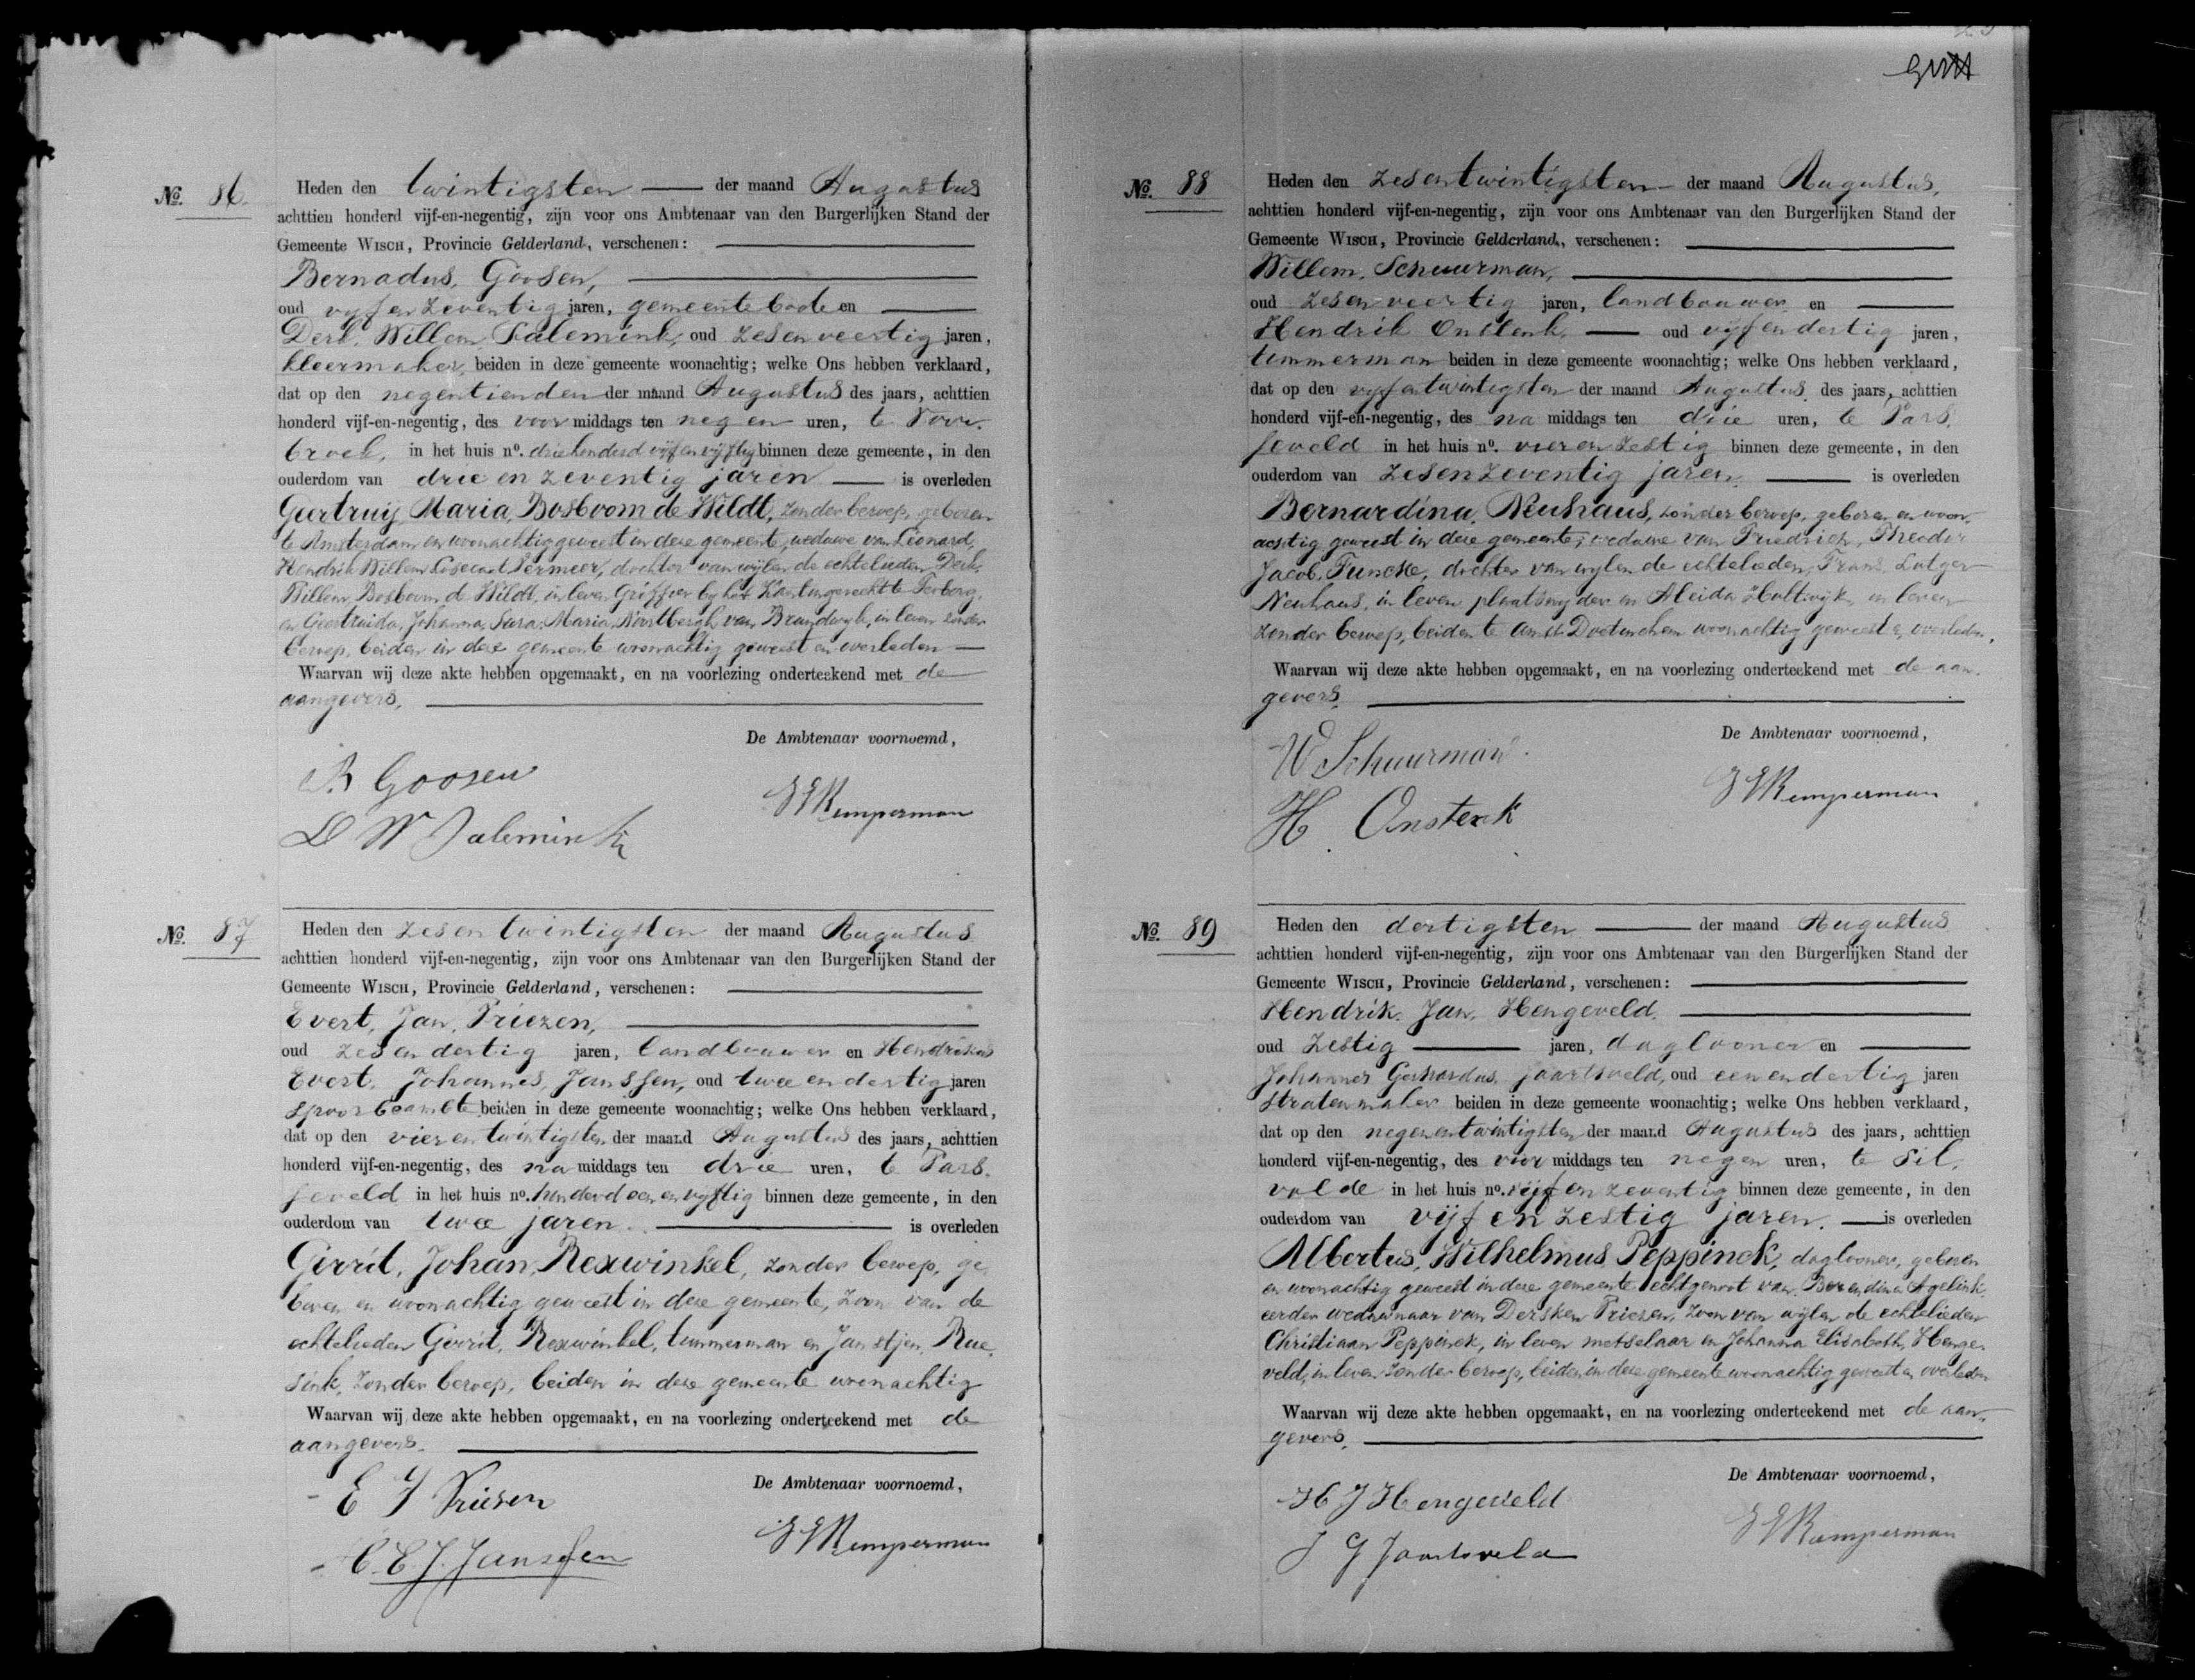 No. 86.
Heden den twintigsten der maand Augustus
achttien honderd vijf-en-negentig, zijn voor ons Ambtenaar van den Burgerlijken Stand der
Gemeente WISCH, Provincie Gelderland, verschenen:
Bernadus, Goosen,
oud vijf en zeventig jaren, gemeente bode en
Derk, Willem, Salemink, oud zes en veertig jaren,
kleermaker, beiden in deze gemeente woonachtig; welke Ons hebben verklaard,
dat op den negentienden der maand Augustus des jaars, achttien
honderd vijf-en-negentig, des voor middags ten negen uren, te Voor-
broek, in het huis no. driehonderd vijf en vijftig binnen deze gemeente, in den
ouderdom van drie en zeventig jaren is overleden
Geertruij, Maria, Bosboom de Wildt, zonder beroep, geboren
te Amsterdam en woonachtig geweest in deze gemeente, weduwe van Leonard,
Hendrik Willem Vermeer, dochter van wijlen de echtelieden, Derk,
Willem, Bosboom de Wildt, in leven Griffier bij het Kantongerecht te Terborg,
en Geertruida, Johanna, Sara, Maria, van Brandwijk, in leven zonder
beroep, beiden in deze gemeente woonachtig geweest en overleden
Waarvan wij deze akte hebben opgemaakt, en na voorlezing onderteekend met de
aangevers.
De Ambtenaar voornoemd,
B Goosen
D W Salemink
Kemperman
No. 87
Heden den zes en twintigsten der maand Augustus
achttien honderd vijf-en-negentig, zijn voor ons Ambtenaar van den Burgerlijken Stand der
Gemeente WISCH, Provincie Gelderland, verschenen:
Evert, Jan, Friezen,
oud zes en dertig jaren, landbouwer en Hendrikus
Evert, Johannes, Janssen, oud twee en dertig jaren
spoorbeambte beiden in deze gemeente woonachtig; welke Ons hebben verklaard,
dat op den vier en twintigsten der maand Augustus des jaars, achttien
honderd vijf-en-negentig, des na middags ten drie uren, te Vars-
seveld in het huis no. honderd een en vijftig binnen deze gemeente, in den
ouderdom van twee jaren is overleden
Gerrit, Johan, Rexwinkel, zonder beroep, ge-
boren en woonachtig geweest in deze gemeente, zoon van de
echtelieden Gerrit, Rexwinkel, timmerman en Janstjen, Rue-
sink, zonder beroep, beiden in deze gemeente woonachtig
Waarvan wij deze akte hebben opgemaakt, en na voorlezing onderteekend met de
aangevers.
De Ambtenaar voornoemd,
E J Friesen
H. E. J. Janssen
Kemperman
No. 88
Heden den zes en twintigsten der maand Augustus,
achttien honderd vijf-en-negentig, zijn voor ons Ambtenaar van den Burgerlijken Stand der
Gemeente WISCH, Provincie Gelderland, verschenen:
Willem, Schuurman,
oud zes en veertig jaren, landbouwer en
Hendrik Onstenk, oud vijf en dertig jaren,
timmerman beiden in deze gemeente woonachtig; welke Ons hebben verklaard,
dat op den vijf en twintigsten der maand Augustus des jaars, achttien
honderd vijf-en-negentig, des na middags ten drie uren, te Vars-
seveld in het huis no. vier en zestig binnen deze gemeente, in den
ouderdom van zes en zeventig jaren is overleden
Bernardina, Neuhaus, zonder beroep, geboren en woon-
achtig geweest in deze gemeente, weduwe van Friedrich, Theodor
Jacob, Funcke, dochter van wijlen de echtelieden, Frans, Lutger
Neuhaus, in leven plaatsnyder en Aleida Holtwijk, in leven
zonder beroep, beiden te Ambt Doetinchem woonachtig geweest en overleden,
Waarvan wij deze akte hebben opgemaakt, en na voorlezing onderteekend met de aan-
gevers.
De Ambtenaar voornoemd,
W Schuurman
H. Onstenk
Kemperman
No. 89
Heden den dertigsten der maand Augustus
achttien honderd vijf-en-negentig, zijn voor ons Ambtenaar van den Burgerlijken Stand der
Gemeente WISCH, Provincie Gelderland, verschenen:
Hendrik, Jan, Hengeveld,
oud zestig jaren, daglooner en
Johannes Gerhardus, Jaartsveld, oud een en dertig jaren
stratenmaker beiden in deze gemeente woonachtig; welke Ons hebben verklaard,
dat op den negen en twintigsten der maand Augustus des jaars, achttien
honderd vijf-en-negentig, des voor middags ten negen uren, te Sil-
volde in het huis no. vijf en zeventig binnen deze gemeente, in den
ouderdom van vijf en zestig jaren. is overleden
Albertus, Wilhelmus, Peppinck, daglooner, geboren
en woonachtig geweest in deze gemeente echtgenoot van Berendina Agelink,
eerder weduwnaar van Dersken Friezen, zoon van wijlen de echtelieden
Christiaan Peppinck, in leven metselaar en Johanna Elisabeth, Henge-
veld, in leven zonder beroep, beiden in deze gemeente woonachtig geweest en overleden
Waarvan wij deze akte hebben opgemaakt, en na voorlezing onderteekend met de aan-
gevers.
De Ambtenaar voornoemd,
H J Hengeveld
J G Jaartsveld
Kemperman